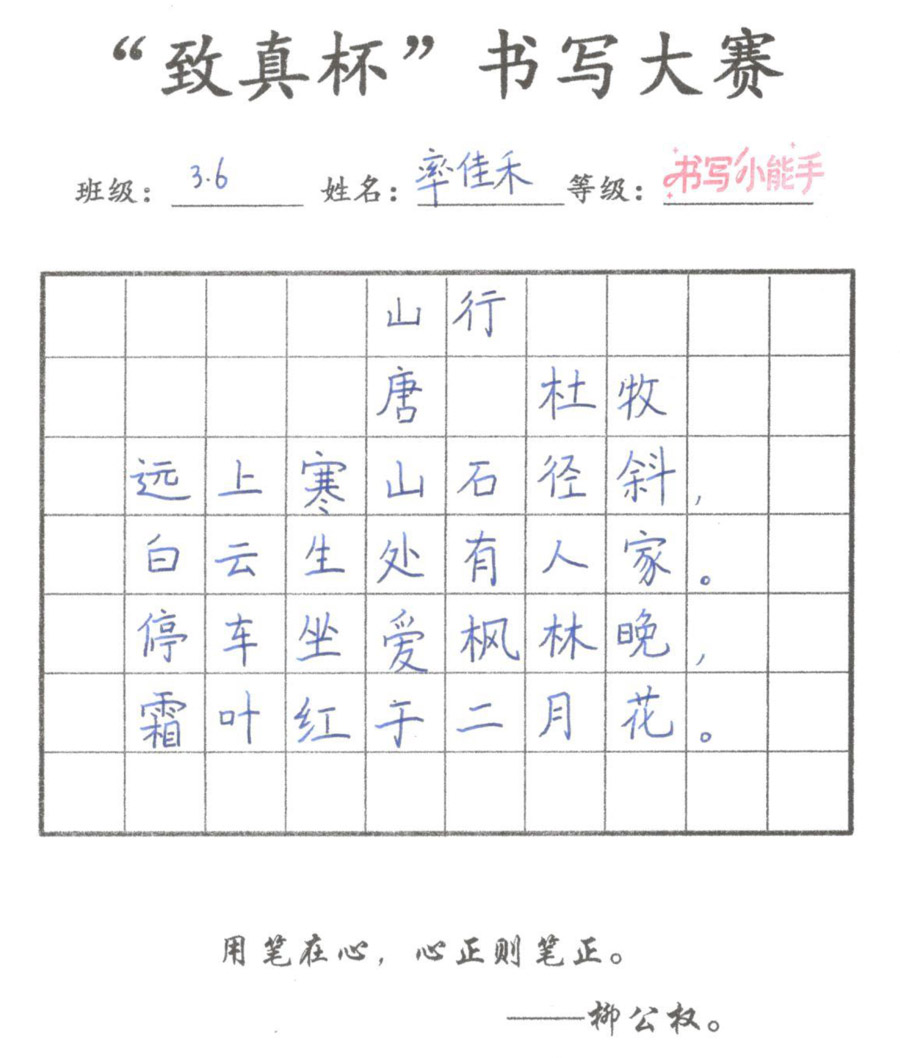 “致真杯”书写大赛
班级：3.6 姓名：率佳禾 等级：书写小能手
山行
唐 杜牧
远上寒山石径斜，
白云生处有人家。
停车坐爱枫林晚，
霜叶红于二月花。
用笔在心，心正则笔正。
——柳公权。